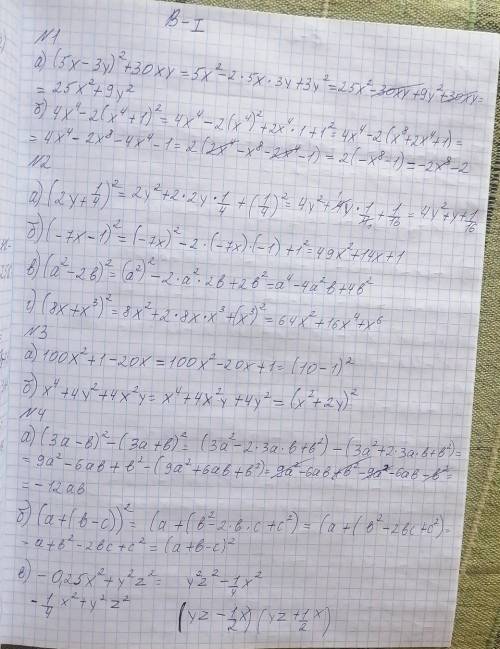 В-I
№1
а) (5x-3y)²+30xy=5x²-2·5x·3y+3y²=25x²-30xy+9y²+30xy=
=25x²+9y²
б) 4x⁴-2(x⁴+1)²=4x⁴-2(x⁴)²+2x⁴·1+1²=4x⁴-2(x⁸+2x⁴+1)=
=4x⁴-2x⁸-4x⁴-1=2(2x⁴-x⁸-2x⁴-1)=2(-x⁸-1)=-2x⁸-2
№2
а) (2y+1/4)²=2y²+2·2y·1/4+(1/4)²=4y²+4y·1/4+1/16=4y²+y+1/16
б) (-7x-1)²=(-7x)²-2·(-7x)·(-1)+1²=49x²+14x+1
в) (a²-2b)²=(a²)²-2·a²·2b+2b²=a⁴-4a²b+4b²
г) (8x+x³)²=8x²+2·8x·x³+(x³)²=64x²+16x⁴+x⁶
№3
а) 100x²+1-20x=100x²-20x+1=(10-1)²
б) x⁴+4y²+4x²y=x⁴+4x²y+4y²=(x²+2y)²
№4
а) (3a-b)²-(3a+b)²=(3a²-2·3a·b+b²)-(3a²+2·3a·b+b²)=
=9a²-6ab+b²-(9a²+6ab+b²)=9a²-6ab+b²-9a²-6ab-b²=
=-12ab
б) (a+(b-c))²=(a+(b²-2·b·c+c²)=(a+(b²-2bc+c²)=
-a+b²-2bc+c²=(a+b-c)²
в) -0,25x²+y²z²= y²z²-1/4x²
-1/4x²+y²z² (yz-1/2x)(yz+1/2x)